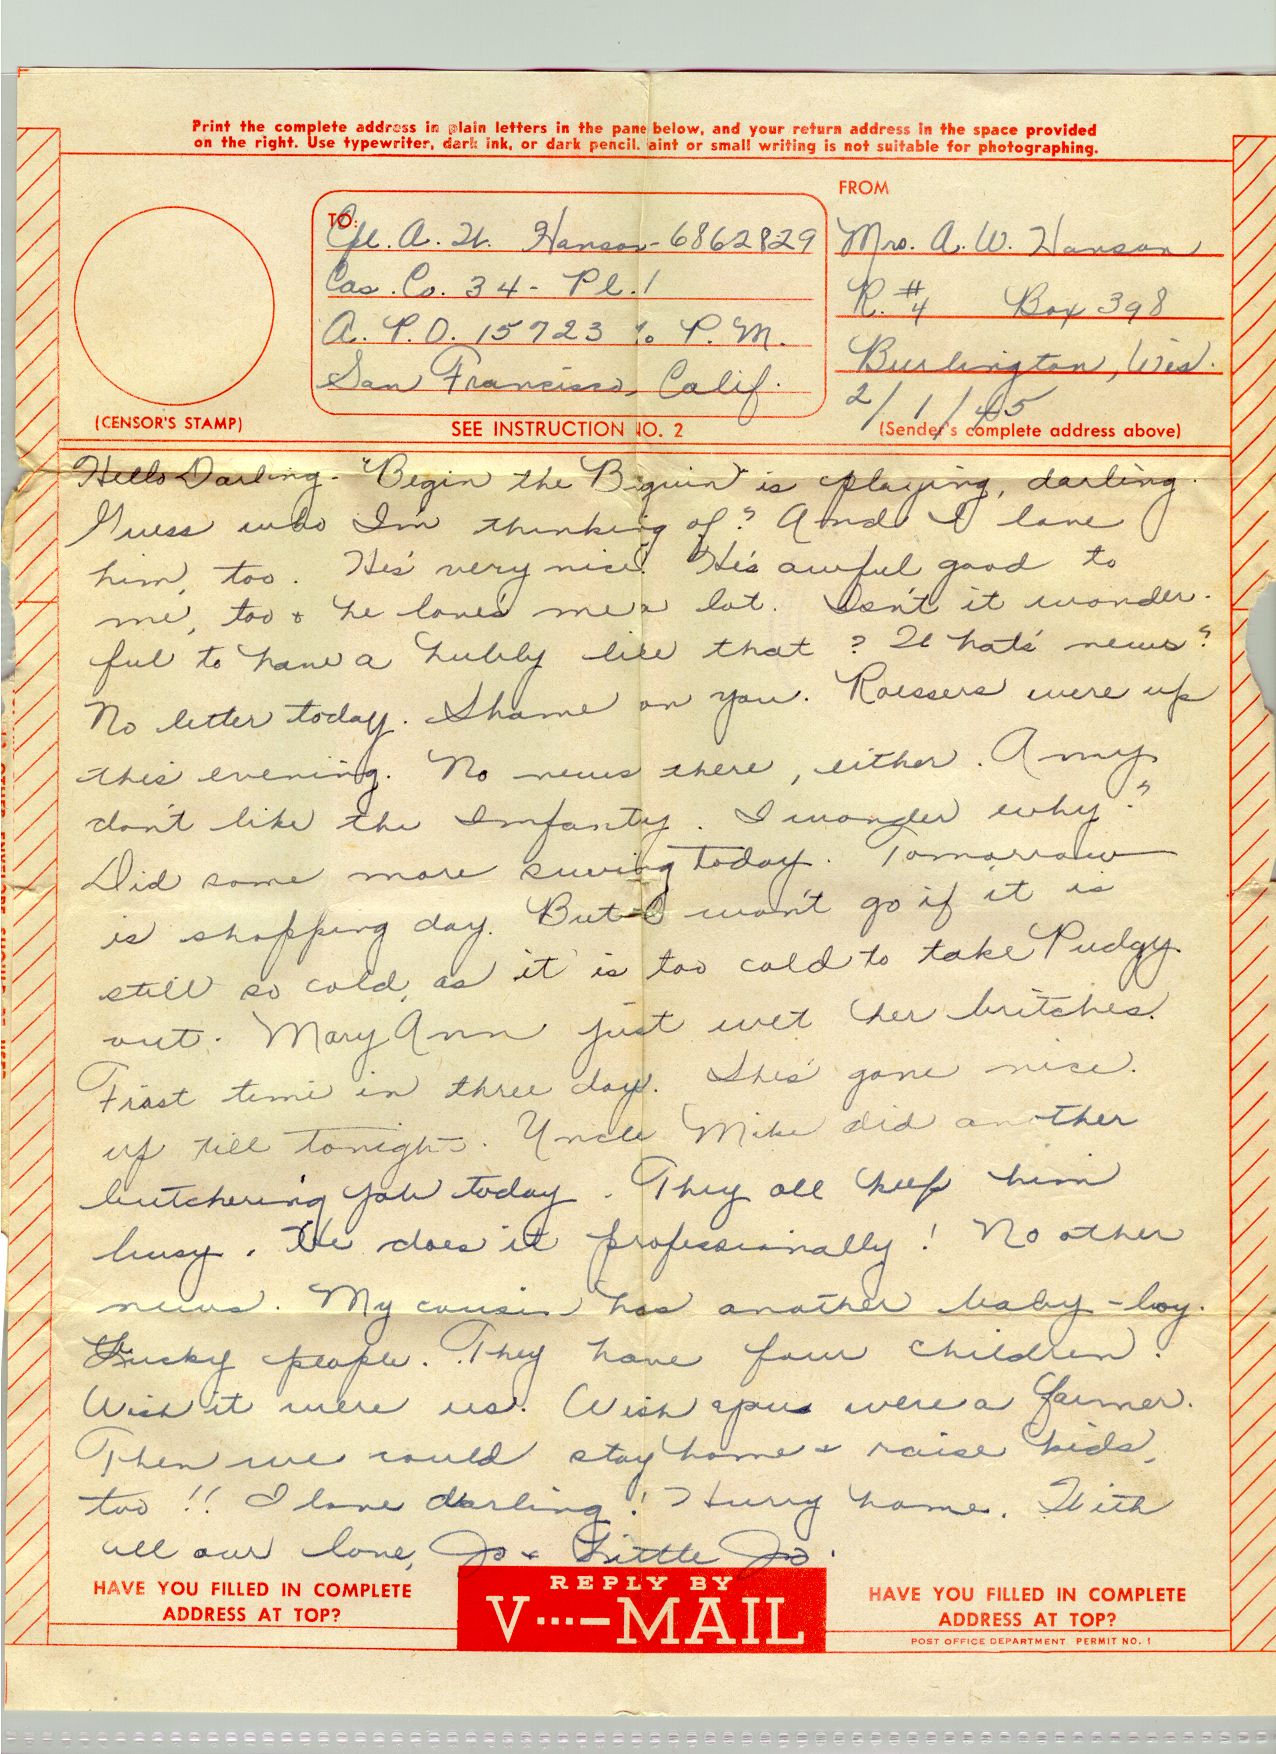 Print the complete address in plain letters in the pane below, and your return address in the space provided
on the right. Use typewriter, dark ink, or dark pencil. aint or small writing is not suitable for photographing.
(CENSOR'S STAMP)
TO:
A. W. Hanson - 6862829
Cas. Co. 34 - Pl. 1
A. P. O. 15723 % P. M.
San Francisco, Calif.
SEE INSTRUCTION NO. 2
FROM
Mrs. A. W. Hanson
R. #4 Box 398
Burlington, Wis.
2/1/45
(Sender's complete address above)
Hello Darling - "Begin the Biguin" is playing, darling.
Guess who I'm thinking of? And I love
him, too. He's very nice. He's awful good to
me, too & he loves me a lot. Isn't it wonder-
ful to have a hubby like that? What's news?
No letter today. Shame on you. Roessers were up
this evening. No news there, either. Amy
don't like the Infanty. I wonder why?
Did some more suwing today. Tomorrow
is shopping day. But I won't go if it is
still so cold, as it is too cold to take Pudgy
out. Mary Ann just wet her britches.
First time in three day. She's gone nice.
up till tonight. Uncle Mike did another
butchering job today. They all keep him
busy. He does it professionally! No other
news. My cousin has another baby - boy.
Lucky people. They have four children.
Wish it were us. Wish you were a farmer.
Then we could stay home & raise kids,
too!! I love darling! Hurry home. With
all our love, Jo & Little Jo.
HAVE YOU FILLED IN COMPLETE
ADDRESS AT TOP?
REPLY BY
V···—MAIL
HAVE YOU FILLED IN COMPLETE
ADDRESS AT TOP?
POST OFFICE DEPARTMENT PERMIT NO. 1